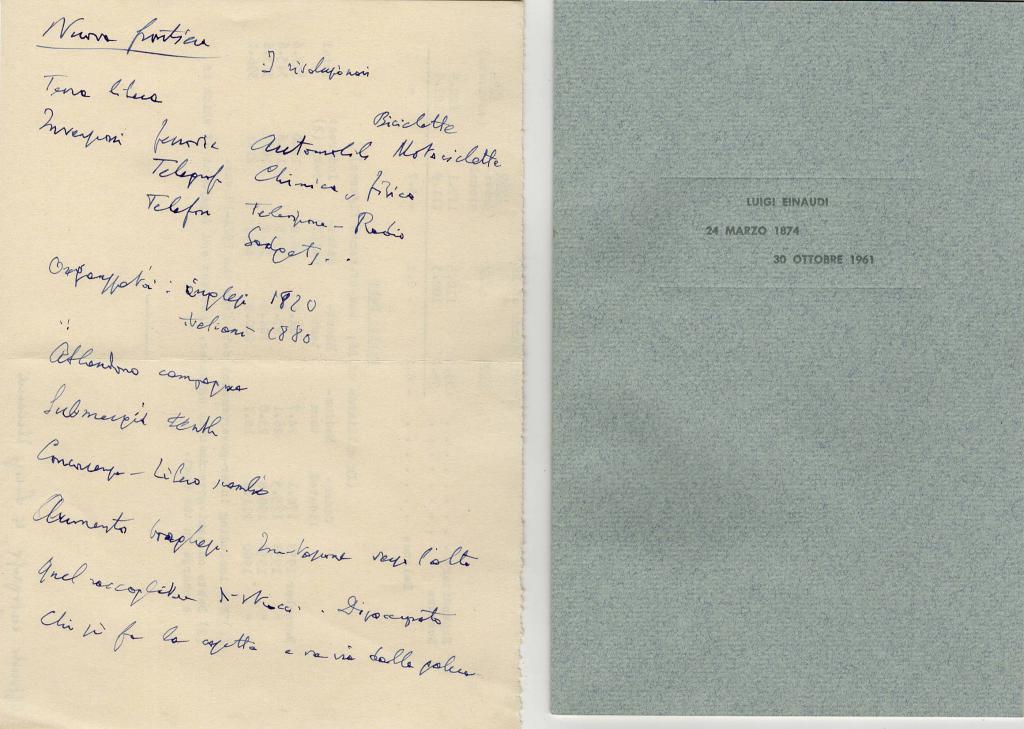 Nuova frontiera
I rivoluzionari
Terra libera
Biciclette
Invenzioni ferrovia Automobili Motociclette
Telegraf Chimica, fisica
Telefon Televisione - Radio
Gadgets..
Organizzata: inglesi 1820
italiani 1880
Abbandono campagna
Submerged tenth
Concorrenza - Libero scambio
Aumento bisogni. Imitazione verso l'alto
Quel raccoglitore di stracci. Disoccupato
Chi si fa la casetta e va via dalla
LUIGI EINAUDI
24 MARZO 1874
30 OTTOBRE 1961